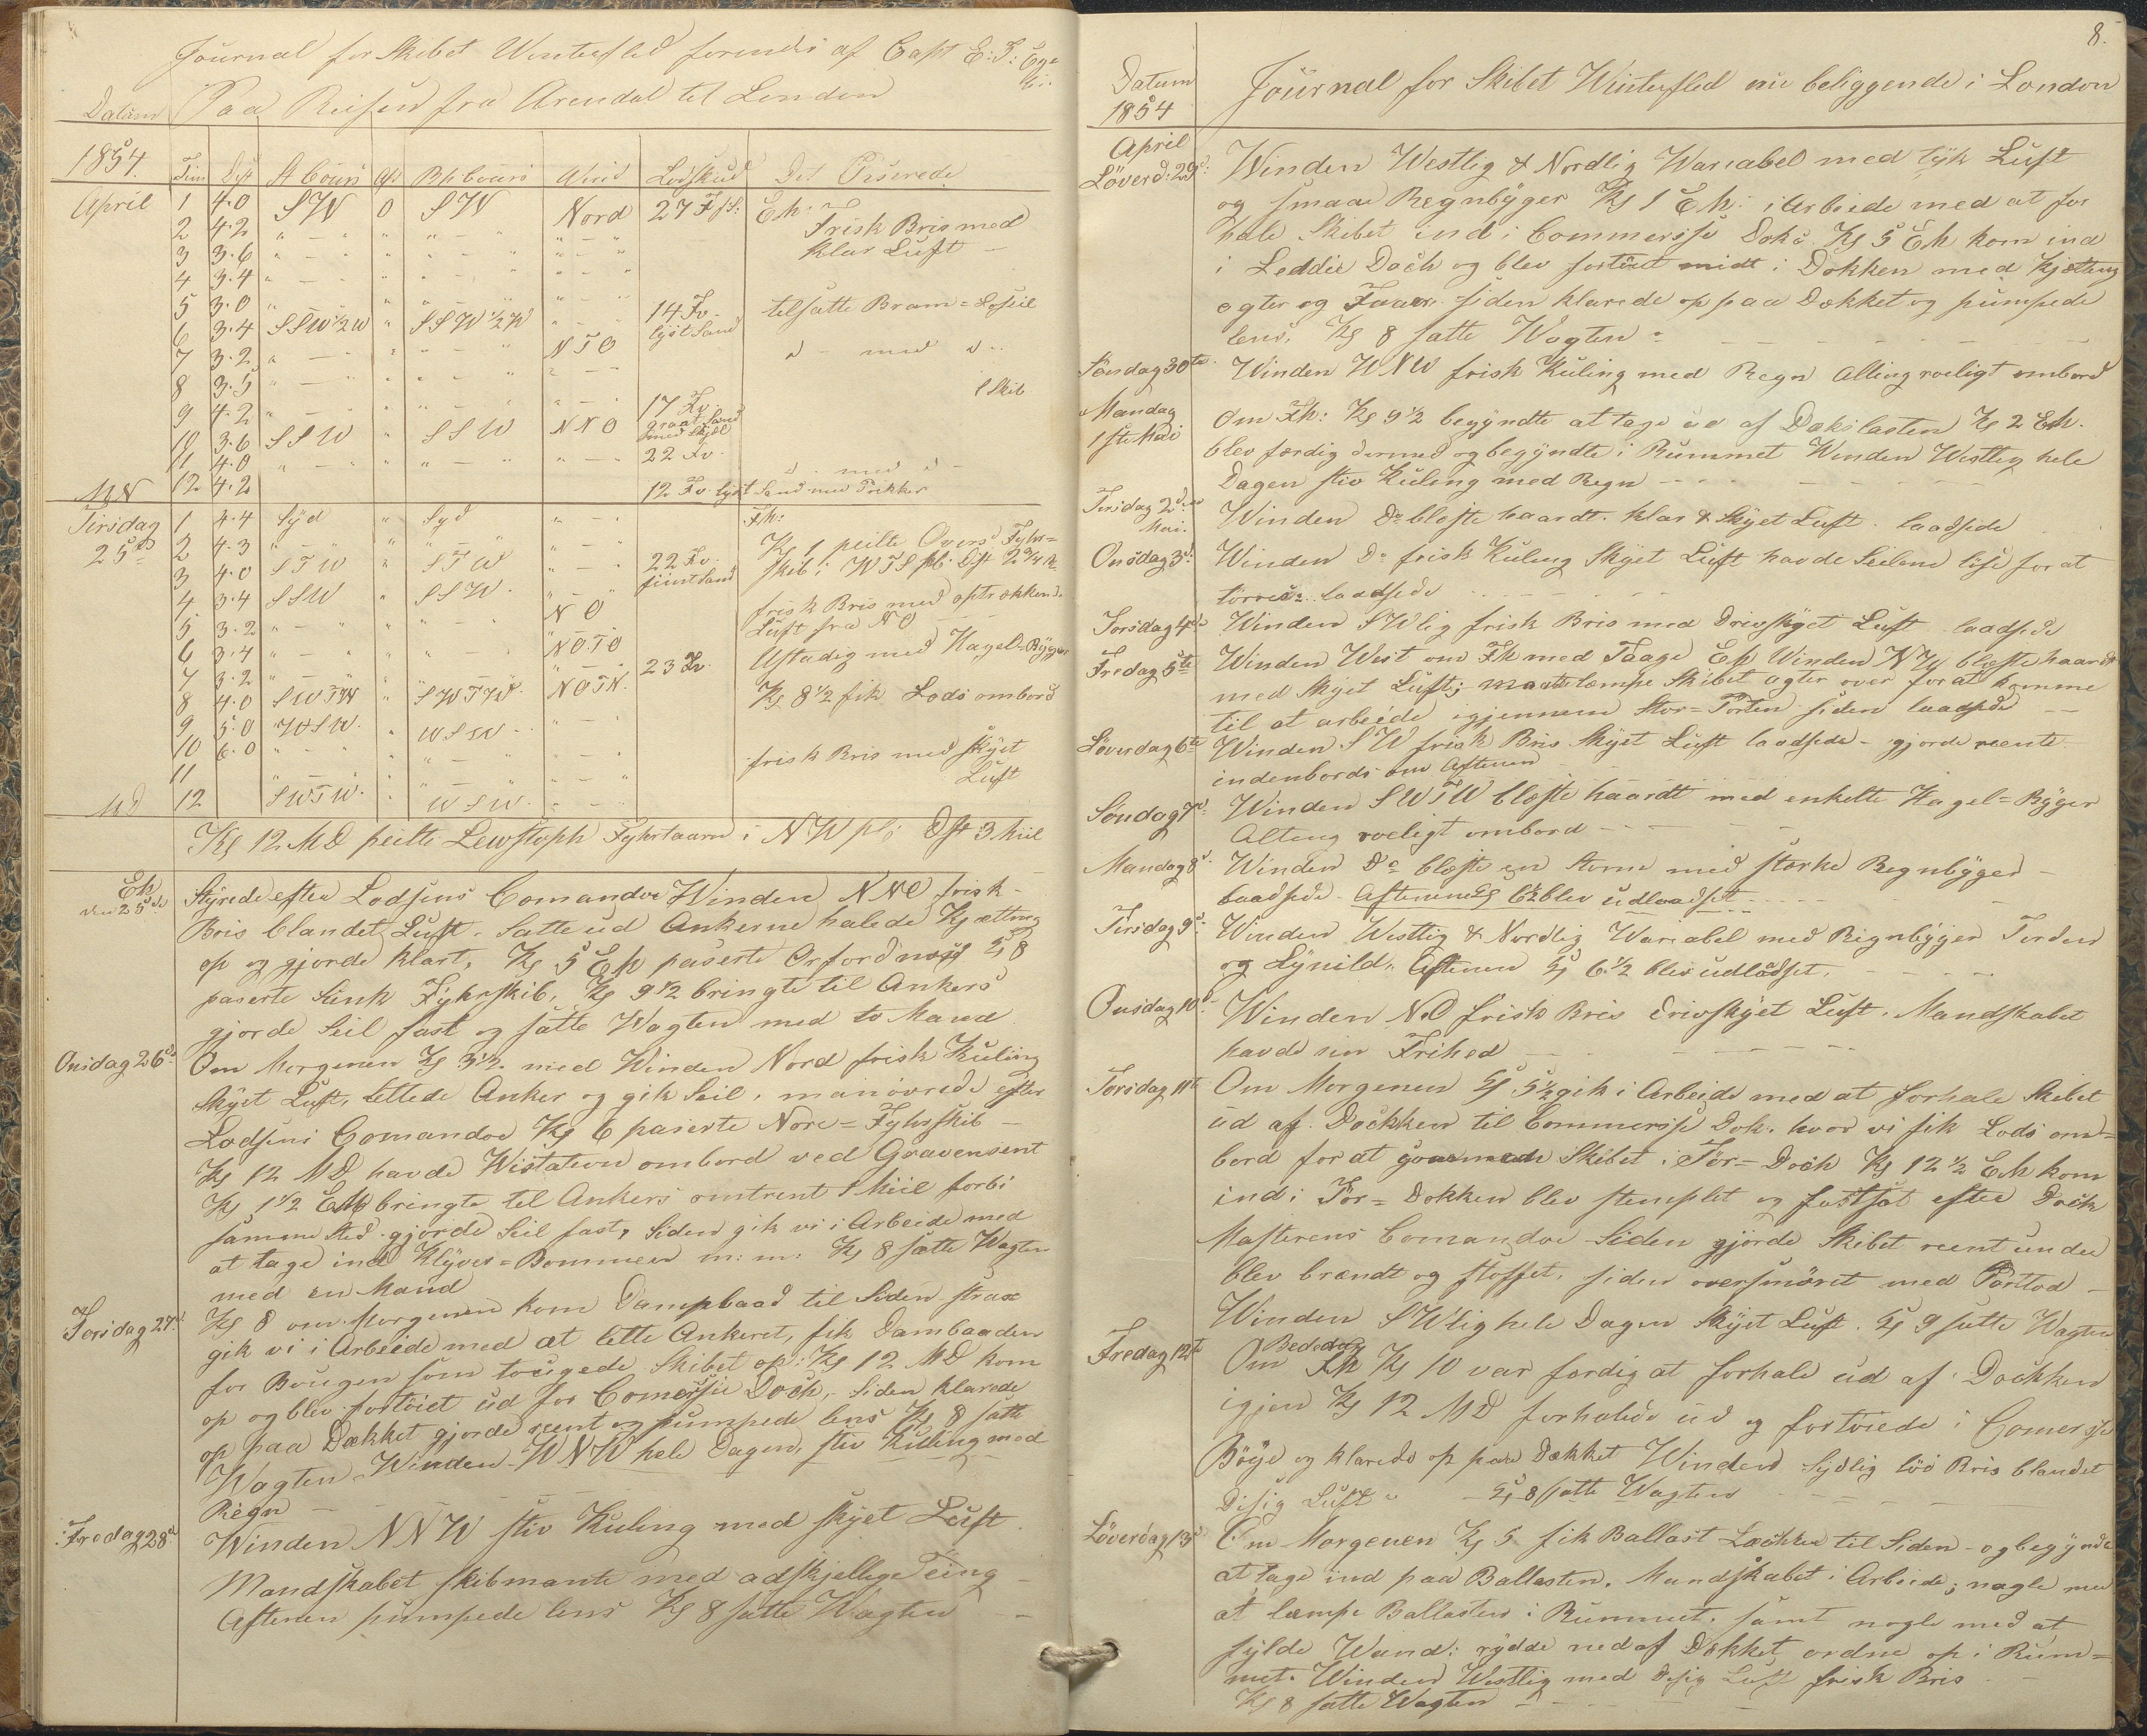 Journal for Skibet Winterflid førendes af Capt E: T:
Paa Reisen fra Arendal til London
Datum
1854. Tim Dist St Cours Afd Bh Cours Wind Lodskud Det Passerede
April 1 4.0 SW 0 SW Nord 27 Fv: Eh:
2 4.2 " - " " " - " " - " Frisk Bris med
3 3.6 " - " " " - " " - " klar Luft -
4 3.4 " - " " " - " " - "
5 3.0 " " " " - " 14 Fv. tilsatte Bram=Losseil
6 3.4 SSW 1/2 W " SSW 1/2 W " - " lyst Sand
7 3.2 " - " " " - " NTO d - med d -
8 3.5 " - " " " - " " - " 1 Skib
9 4.2 " - " " " - " " - " 17 Fv.
10 3.6 SSW " SSW NNO graat Sand med Skjæl
11 4.0 " - " " " - " " - " 22 Fv. d - med d -
MN 12 4.2 12 Fv. lyst Sand med Prikker
Tirsdag 1 4.4 Syd " Syd " - " Fh:
25de 2 4.3 " - " " " - " " - " Kl 1 peilte Fyhr=
3 4.0 STW " STW " - " 22 Fv. Skib i WTS pC. Dist 2 3/4 M
4 3.4 SSW " SSW. " - " fiint Sand
5 3.2 " - " " " - " NO frisk Bris med optrækkend
6 3.4 " - " " " - " NOTO Luft fra NO
7 3.2 " - " " " - " " - " 23 Fv. Ustadig med Hagel=Byger
8 4.0 SWTW " SWTW. NOTN. Kl 8 1/2 fik Lods ombord
9 5.0 WSW. " WSW. " - "
10 6.0 " - " " " - " " - " frisk Bris med skyet
11 " - " " " - " " - " Luft
MD 12 SWTW. " WSW. " - "
Kl 12 MD peilte Lewstoph Fyhrtaarn i NW pC: Dst 3 Miil
Eh
den 25de Styrede efter Lodsens Comandoe Winden NNO frisk -
Bris blandet Luft. Satte ud Ankerne halede Kjætting
op og gjorde klart, Kl 5 Eh paserte Orfordness Kl 8
paserte Sunk Fyhrskib, Kl 9 1/2 bringte til Ankers
gjorde Seil fast og satte Wagten med to Mand
Onsdag 26de Om Morgenen Kl 3 1/2 med Winden Nord frisk Kuling
Skyet Luft, lettede Anker og gik Seil, manøvrede efter
Lodsens Comandoe Kl 6 paserte Nore=Fyhrskib -
Kl 12 MD havde Wistation ombord ved Gravensent
Kl 1 1/2 Eh bringte til Ankers omtrent 1 Miil forbi
samme Sted. gjorde Seil fast, Siden gik vi i Arbeide med
at tage ind Klyver=Bommen m: m: Kl 8 satte Wagten
med en Mand
Torsdag 27d. Kl 8 om Morgenen kom Dampbaad til Siden strax
gik vi i Arbeide med at lette Ankeret, fik Dambaaden
for Bougen som tougede Skibet op: Kl 12 MD kom
op og blev fortøiet ud for Comersse Dock, Siden klarede
op paa Dækket gjorde reent og pumpede lens Kl 8 satte
Wagten Winden WNW hele Dagen, stiv Kuling med
Regn -
Fredag 28d Winden NNW stiv Kuling med skyet Luft
Mandskabet skibmante med adskjellige Ting -
Aftenen pumpede lens Kl 8 satte Wagten -
8.
Datum
1854 Journal for Skibet Winterflid nu beliggende i London
April
Løverd: 29d: Winden Westlig & Nordlig Wariabel med tyk Luft
og smaae Regnbyger Kl 1 Eh: i Arbeide med at for
hale Skibet ind i Commersse Doks Kl 5 Eh kom ind
i Leddie Dock og blev fortøiet midt i Dokken med Kjætting
agter og siden klarede op paa Dækket og pumpede
lens, Kl 8 satte Wagten -
Søndag 30te Winden WNW frisk Kuling med Regn Alting roeligt ombord
Mandag
1ste Mai Om Fh: Kl 9 1/2 begyndte at tage ud af Dækslasten Kl 2 Eh.
blev færdig dermed og begyndte i Rummet Winden Westlig hele
Dagen stiv Kuling med Regn -
Tirsdag 2den
Mai. Winden Do blæste haardt. klar & Skyet Luft laadsede
Onsdag 3d: Winden Do frisk Kuling Skyet Luft havde Seilene løse for at
tørres. laadsede
Torsdag 4de Winden SWlig frisk Bris med Drivskyet Luft laadsede
Fredag 5te Winden West om Fh med Taage Eh Winden NW blæste haardt
med Skyet Luft; maatte læmpe Skibet agter over for at komme
til at arbeide igjennem Stor=Porten siden laadsede -
Løverdag 6te Winden SW frisk Bris Skyet Luft laadsede - gjorde reente
indenbords om Aftenen
Søndag 7d: Winden SWTW blæste haardt med enkelte Hagel=Byger
Alting roeligt ombord -
Mandag 8d. Winden Do blæste en Storm med stærke Regnbyger -
laadsede. Aftenen Kl 6 1/2 blev udlaadset
Tirsdag 9d: Winden Westlig & Nordlig Wariabel med Regnbyger Torden
og Lynild. Aftenen Kl 6 1/2 blev udlodset.
Onsdag 10d Winden NO frisk Bris Drivskyet Luft. Mandskabet
havde sin Frihed -
Torsdag 11te Om Morgenen Kl 5 1/2 gik i Arbeide med at forhale Skibet
ud af Dockken til Commersse Dok. hvor vi fik Lods om=
bord for at Skibet i Tør=Dock Kl 12 1/2 Eh kom
ind i Tør=Dokken blev stemplet og fastsat efter Dock
Masterens Comandoe Siden gjorde Skibet reent under
blev brændt og stoffet, siden oversmøret med
Winden SWlig hele Dagen Skyet Luft. Kl 9 satte Wagten
Fredag 12te Bededag
Om Fh Kl 10 var færdig at forhale ud af Dockken
igjen Kl 12 MD forhalede ud og fortøiede i Comersse
Bøye og klarede op paa Dækket Winden Sydlig løi Bris blandet
Disig Luft - Kl 8 satte Wagten
Løverdag 13d Om Morgenen Kl 5 fik Ballast Læckten til Siden - og begynde
at tage ind paa Ballasten. Mandskabet i Arbeide; nogle med
at læmpe Ballasten i Rummet. samt nogle med at
fylde Wand: rydde ned af Dækket ordne op i Rum=
met. Winden Westlig med Disig Luft frisk Bris
Kl 8 satte Wagten -